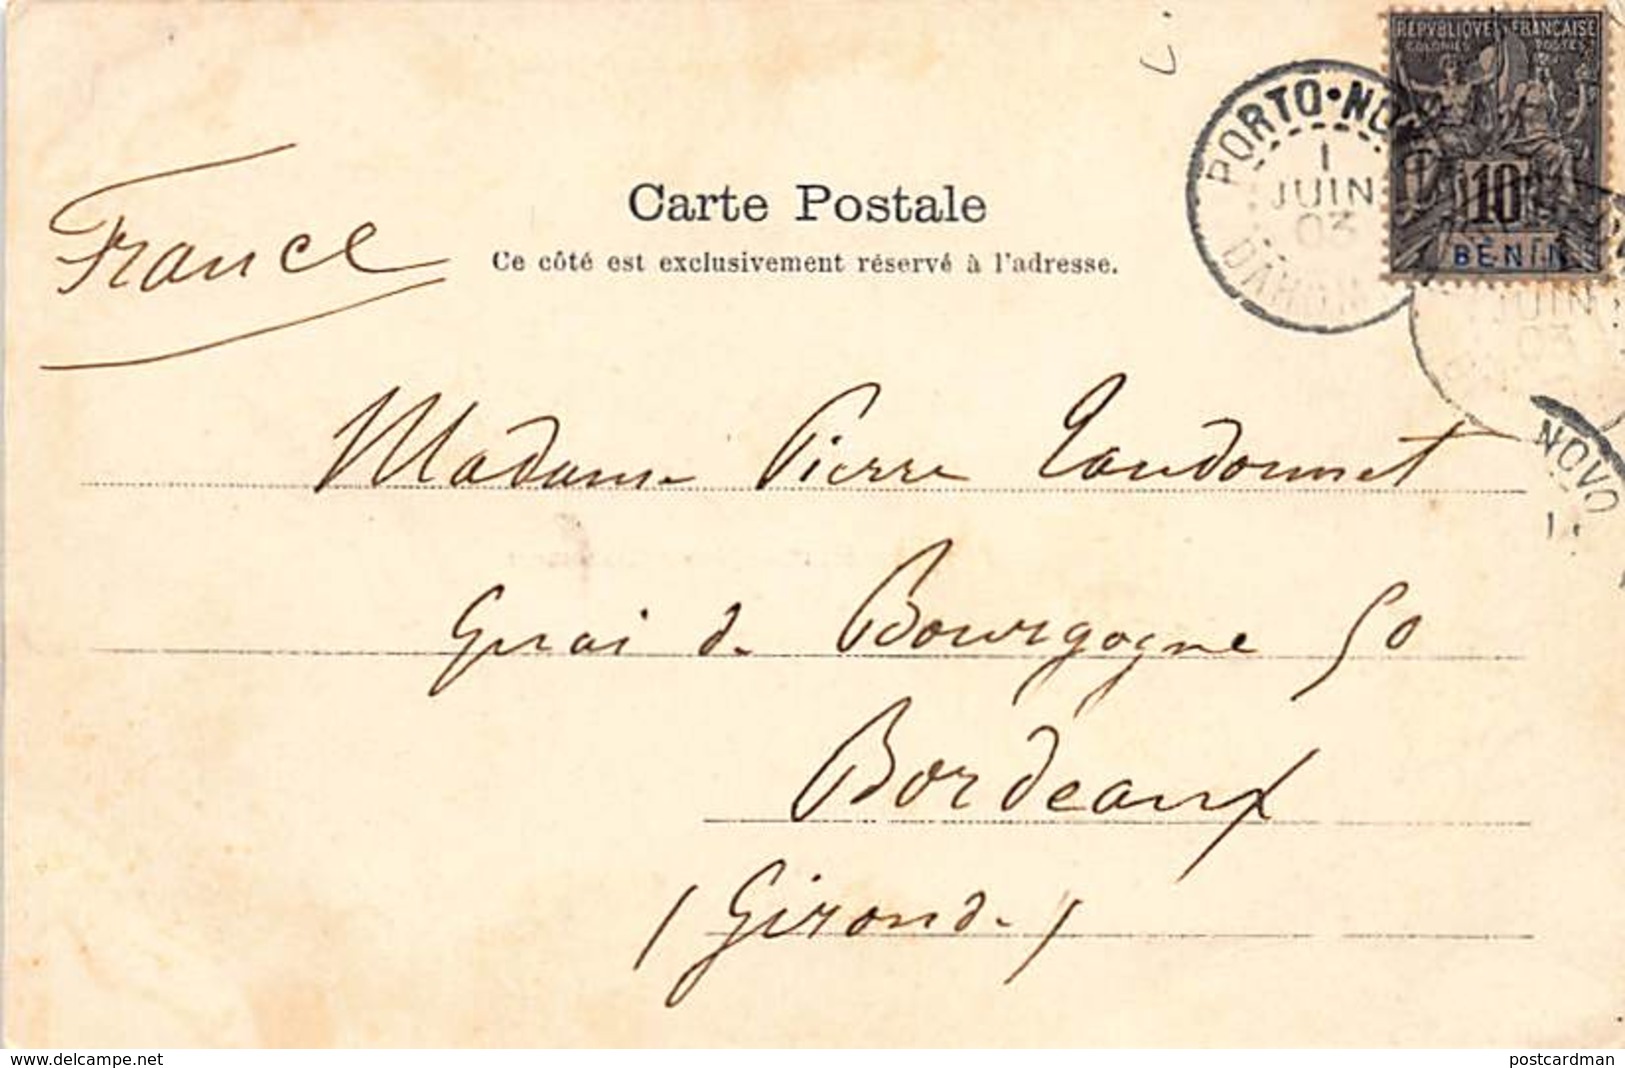 REPVBLIQVE FRANÇAISE
COLONIES POSTES
10
BÉNIN
PORTO-NO
1
JUIN
03
DAHOM
JUIN
03
NOVO
Carte Postale
Ce côté est exclusivement réservé à l'adresse.
France
Madame Pierre Taudonnet
Quai de Bourgogne 50
Bordeaux
(Gironde)
www.delcampe.net
postcardman